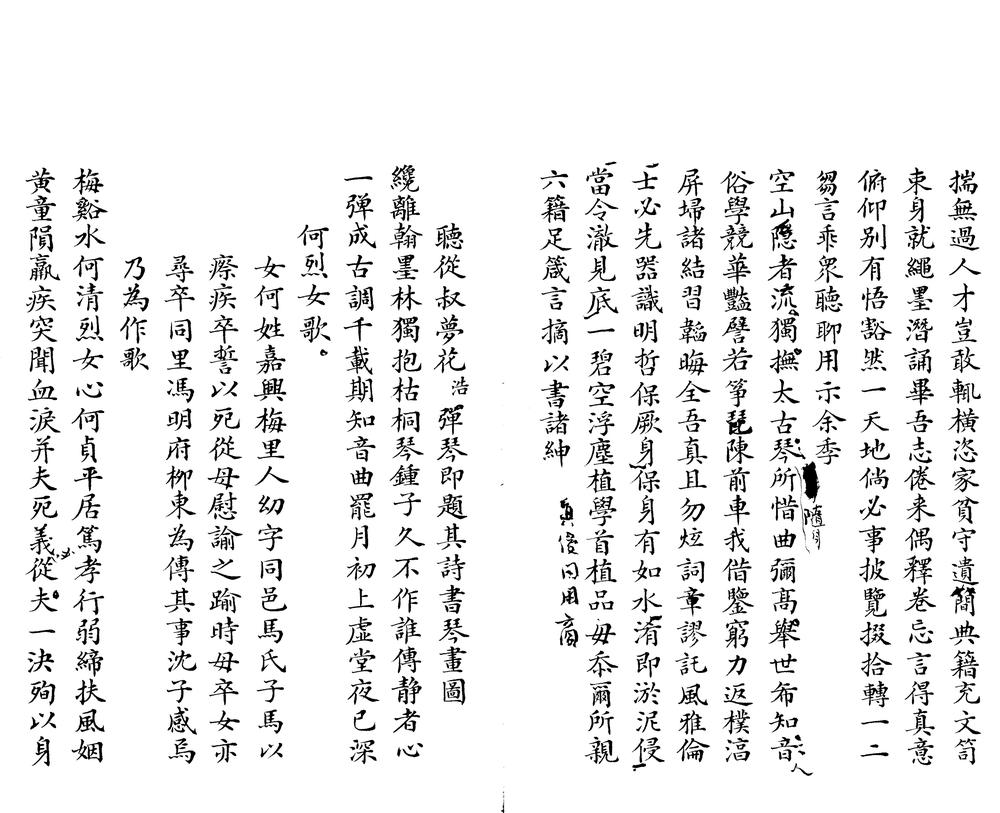 揣無過人才豈敢軏橫恣家貧守遺簡典籍充文笥
束身就繩墨潛誦畢吾志倦来偶釋卷忘言得真意
俯仰别有悟豁然一天地倘必事披覽掇拾轉一二
芻言乖衆聽聊用示余季
空山隐者流獨撫太古琴所惜曲彌髙舉世希知音
俗學競華豔譬若筝琵陳前車我借鑒窮力返樸滈
屏埽諸結習韜晦全吾真且勿炫詞章謬託風雅倫
士必先器識明哲保厥身保身有如水淆即淤泥侵
當令澈見底一碧空浮塵植學首植品毋忝爾所親
六籍足箴言摘以書諸紳
聽從叔夢花浩彈琴即題其詩書琴畫圖
纔離翰墨林獨抱枯桐琴鍾子久不作誰傳静者心
一彈成古調千載期知音曲罷月初上虚堂夜已深
何烈女歌
女何姓嘉興梅里人幼字同邑馬氏子馬以
瘵疾卒誓以死從母慰諭之踰時母卒女亦
尋卒同里馮明府柳東為傳其事沈子感焉
乃為作歌
梅谿水何清烈女心何貞平居篤孝行弱締扶風姻
黄童隕羸疾突聞血淚并夫死義從夫一決殉以身